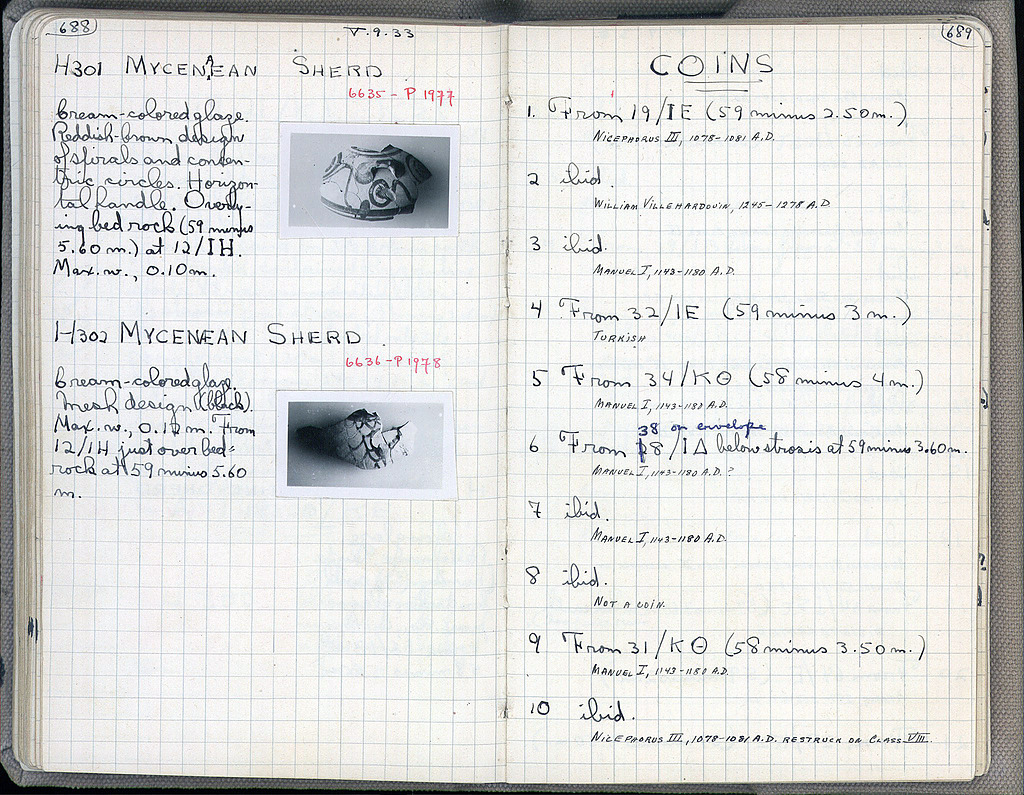 688
V.9.33
H301 MYCENAEAN SHERD
6635 - P 1977
Cream-colored glaze.
Reddish-brown design
of spirals and concen-
tric circles. Horizon-
tal handle. Overly-
ing bed rock (59 minus
5.60 m.) at 12/IH.
Max. w., 0.10 m.
H302 MYCENAEAN SHERD
6636 - P 1978
Cream-colored glaze.
Mesh design (black).
Max. w., 0.12 m. From
12/IH just over bed-
rock at 59 minus 5.60
m.
689
COINS
1. From 19/IE (59 minus 2.50 m.)
NICEPHORUS III, 1078-1081 A.D.
2 ibid.
WILLIAM VILLEHARDOUIN, 1245-1278 A.D.
3 ibid.
MANUEL I, 1143-1180 A.D.
4 From 32/IE (59 minus 3 m.)
TURKISH
5 From 34/KΘ (58 minus 4 m.)
MANUEL I, 1143-1180 A.D.
38 on envelope
6 From 8/IΔ below strosis at 59 minus 3.60 m.
MANUEL I, 1143-1180 A.D. ?
7 ibid.
MANUEL I, 1143-1180 A.D.
8 ibid.
NOT A COIN.
9 From 31/KΘ (58 minus 3.50 m.)
MANUEL I, 1143-1180 A.D.
10 ibid.
NICEPHORUS III, 1078-1081 A.D. RESTRUCK ON CLASS VIII.